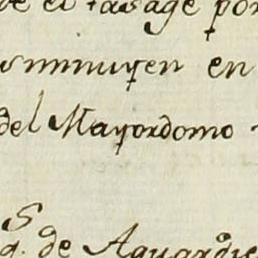 el pasage por
sminuyen en
del Mayordomo
S
q. de Aguardie